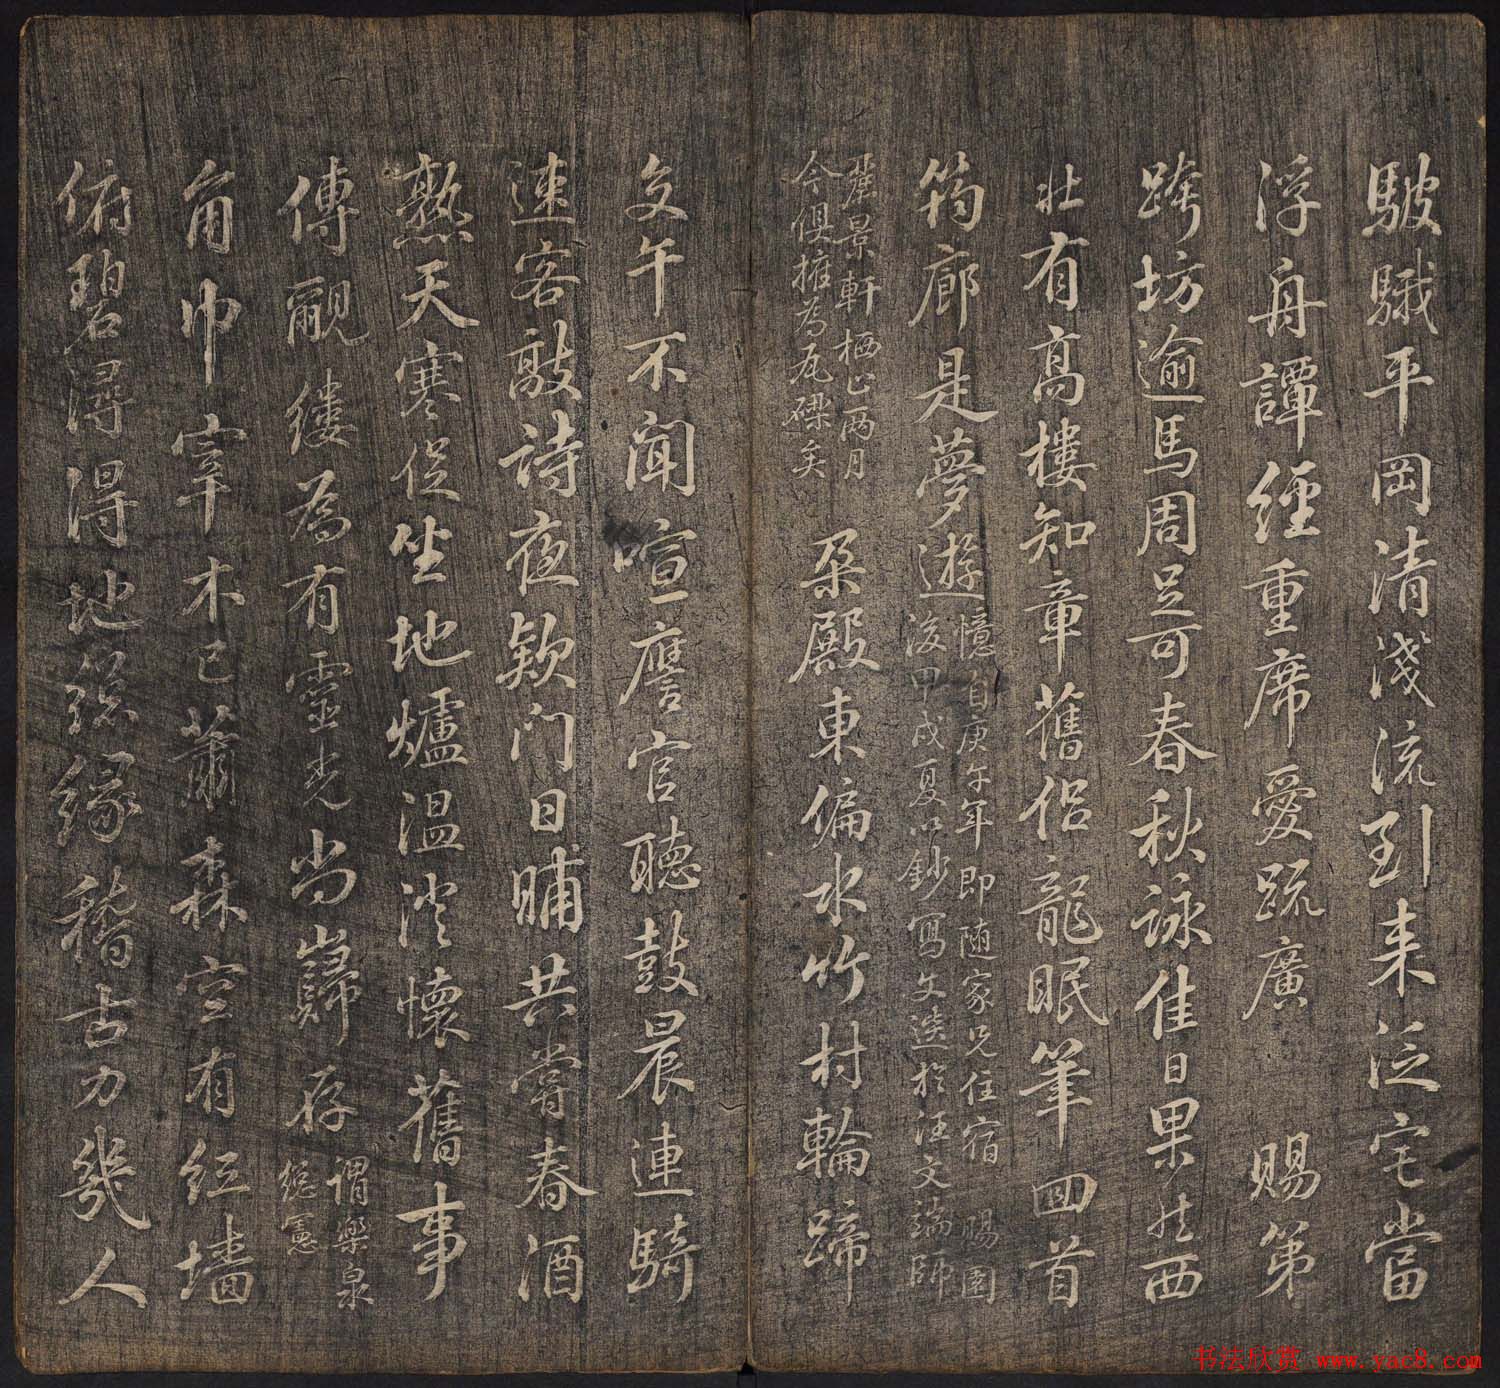 駊騀平岡清淺流到来泛宅當
浮舟譚經重席愛疏廣 賜第
跨坊逾馬周足可春秋詠佳日果然西
壮有髙樓知章舊侣龍眠筆回首
筠廊是夢遊憶自庚午年即随家兄住宿 賜園
後甲戌夏以鈔寫文选於汪文端師
麗景軒栖止兩月
今俱摧為瓦礫矣 朶殿東偏水竹村輪蹄
交午不聞喧一麐官聽鼓晨連騎
速客敲詩夜欵门日晡共嘗春酒
熟天寒促坐地爐温淡懷舊事
傳覼缕為有靈光尚巋存謂樂泉
總憲
角巾宰木已蕭森空有红墙
俯碧潯得地緣稽古力幾人
书法欣赏 www.yac8.com